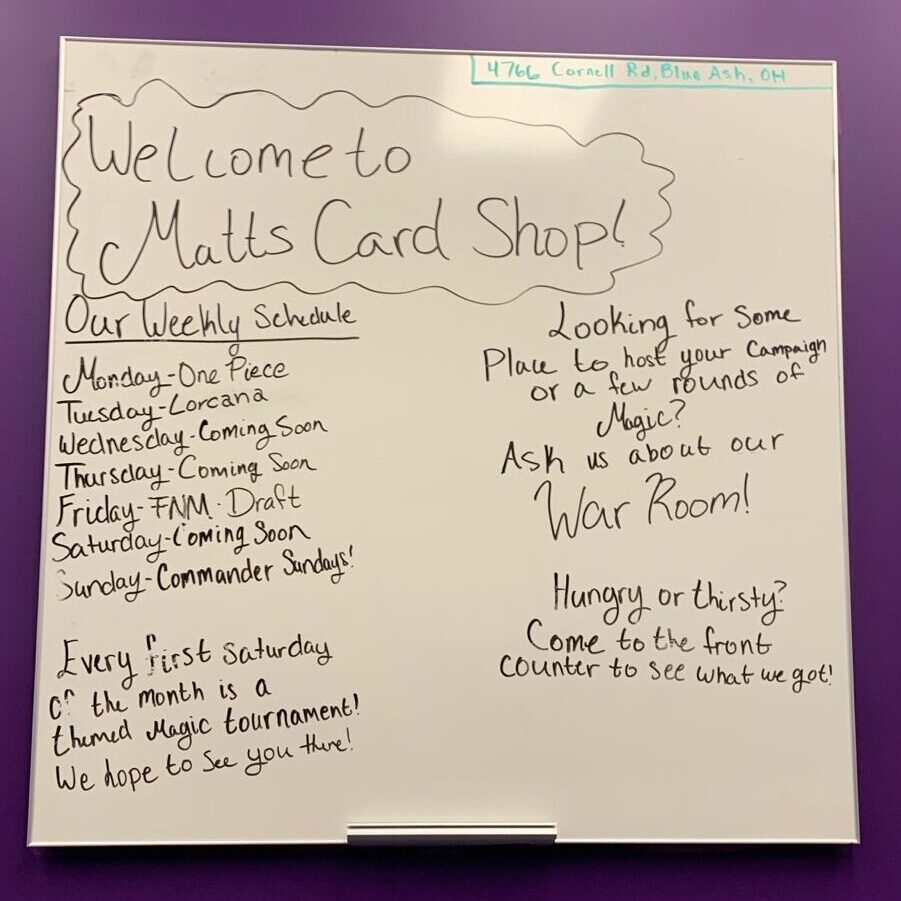 4766 Cornell Rd, Blue Ash, OH
Welcome to
Matts Card Shop!
Our Weekly Schedule
Monday-One Piece
Tuesday-Lorcana
Wednesday-Coming Soon
Thursday-Coming Soon
Friday-FNM Draft
Saturday-Coming Soon
Sunday-Commander Sundays!
Every first Saturday
of the month is a
themed Magic tournament!
We hope to see you there!
Looking for some
Place to host your Campaign
or a few rounds of
Magic?
Ask us about our
War Room!
Hungry or thirsty?
Come to the front
counter to see what we got!